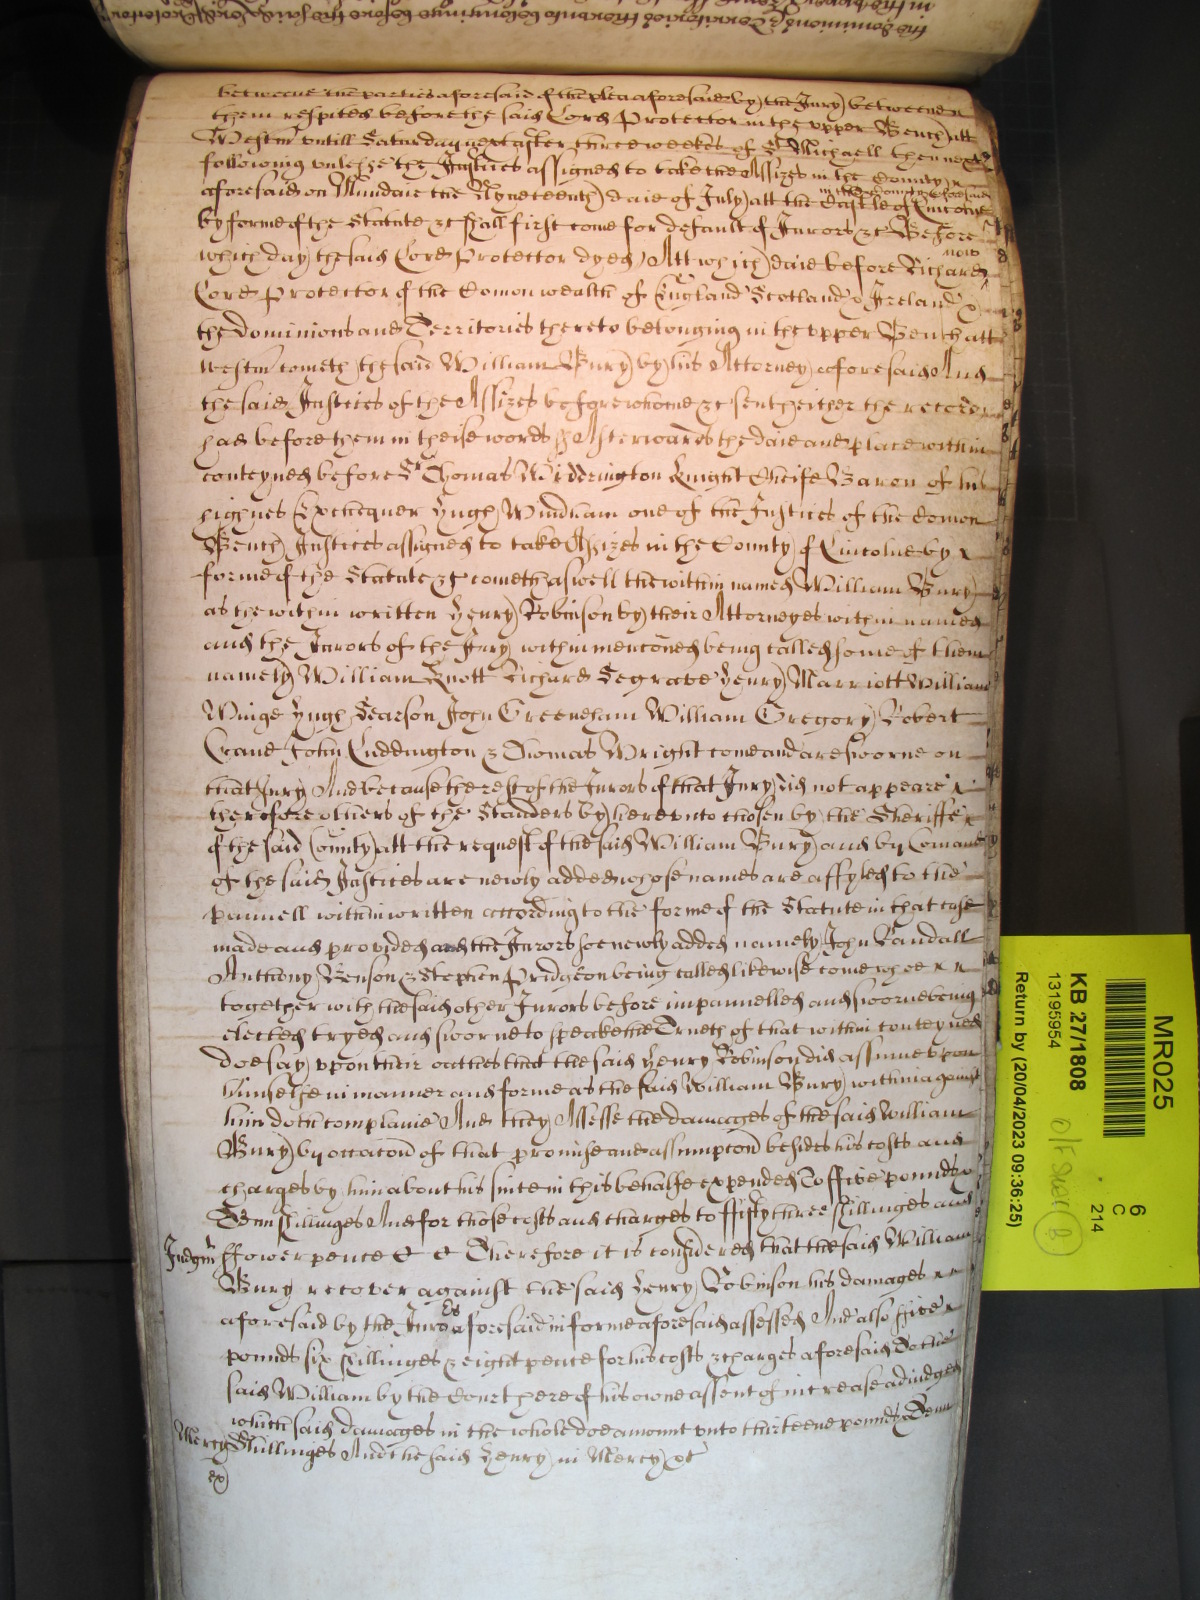 the dominions & Territories thereunto belonging before the said Lord Protector
betweene the parties aforesaid of the plea aforesaid by the Jury betweene
them respited before the said Lord Protector in the vpper Bench att
Westmr vntill Saturday next after three weekes of St Michaell then next
following vnlesse the Justices assigned to take the Assizes in the County
in the County aforesaid
aforesaid on Mundaie the Nyneteenth daie of July att the Castle of Lincolne
by forme of the Statute &c shall first come for default of Jurors &c Before
now
which day the said Lord Protector dyed Att which daie before Richard
Lord Protector of the Comonwealth of England Scotland & Ireland &
the dominions and Territories thereto belonging in the vpper Bench att
Westmr cometh the said William Bury by his Attorney aforesaid And
the said Justices of the Assizes before whome &c sent heither the record
had before them in theise words ss Afterwards the daie and place within
conteyned before Sr Thomas Widderington Knight Cheife Baron of his
highnes Exchequer Hugh Windham one of the Justices of the Comon
Bench Justices assigned to take Assizes in the County of Lincolne by
forme of the Statute &c cometh aswell the within named William Bury
as the within written Henry Robinson by their Attorneyes within named
and the Jurors of the Jury within mencõned being called some of them
namely William Knott Richard Segrave Henry Marriott William
Winge Hugh Searson John Greeneham William Gregory Robert
Crane John Luddington & Thomas Wright come and are sworne on
that Jury And because the rest of the Jurors of that Jury did not appeare
therefore others of the Standers by herevnto chosen by the Sheriffe
of the said County att the request of the said William Bury and by Comand
of the said Justices are newly added whose names are affyled to the
pannell within written according to the forme of the Statute in that case
made and provided and the Jurors soe newly added namely John Randall
Anthony Benson & Stephen Pridgeon being called likewise come whoe
together with the said other Jurors before impannelled and sworne being
elected tryed and sworne to speake the Trueth of that within conteyned
doe say vpon their oathes that the said Henry Robinson did assume vpon
himselfe in manner and forme as the said William Bury within against
him doth complaine And they Assesse the damages of the said William
Bury by occacõn of that promise and assumpcõn besides his costs and
charges by him about his suite in this behalfe expended To ffive pounds
Tenn shillinges And for those costs and charges to ffifty three shillinges and
Judgmt ffower pence &c &c Therefore it is considered that the said William
Bury recover against the said Henry Robinson his damages
aforesaid by the Jurors aforesaid in forme aforesaid assessed And also ffive
pounds six shillinges & eight pence for his costs & charges aforesaid to the
said William by the Court here of his owne assent of increase adiudged
which said damages in the whole doe amount vnto thirteene pounds Tenn
Mercy Shillinges And the said Henry in Mercy &c
MR025
6
C
214
KB 27/1808
13195954
Return by (20/04/2023 09:36:25)